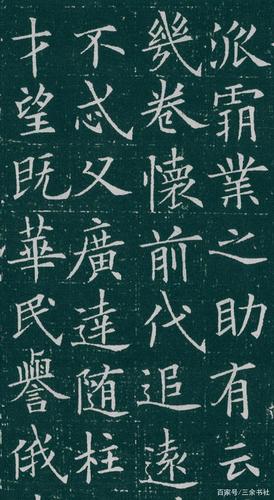 派霸業之助有云
幾卷懷前代追遠
不忒父廣達随柱
才望既華民譽俄
百家号/三余书社